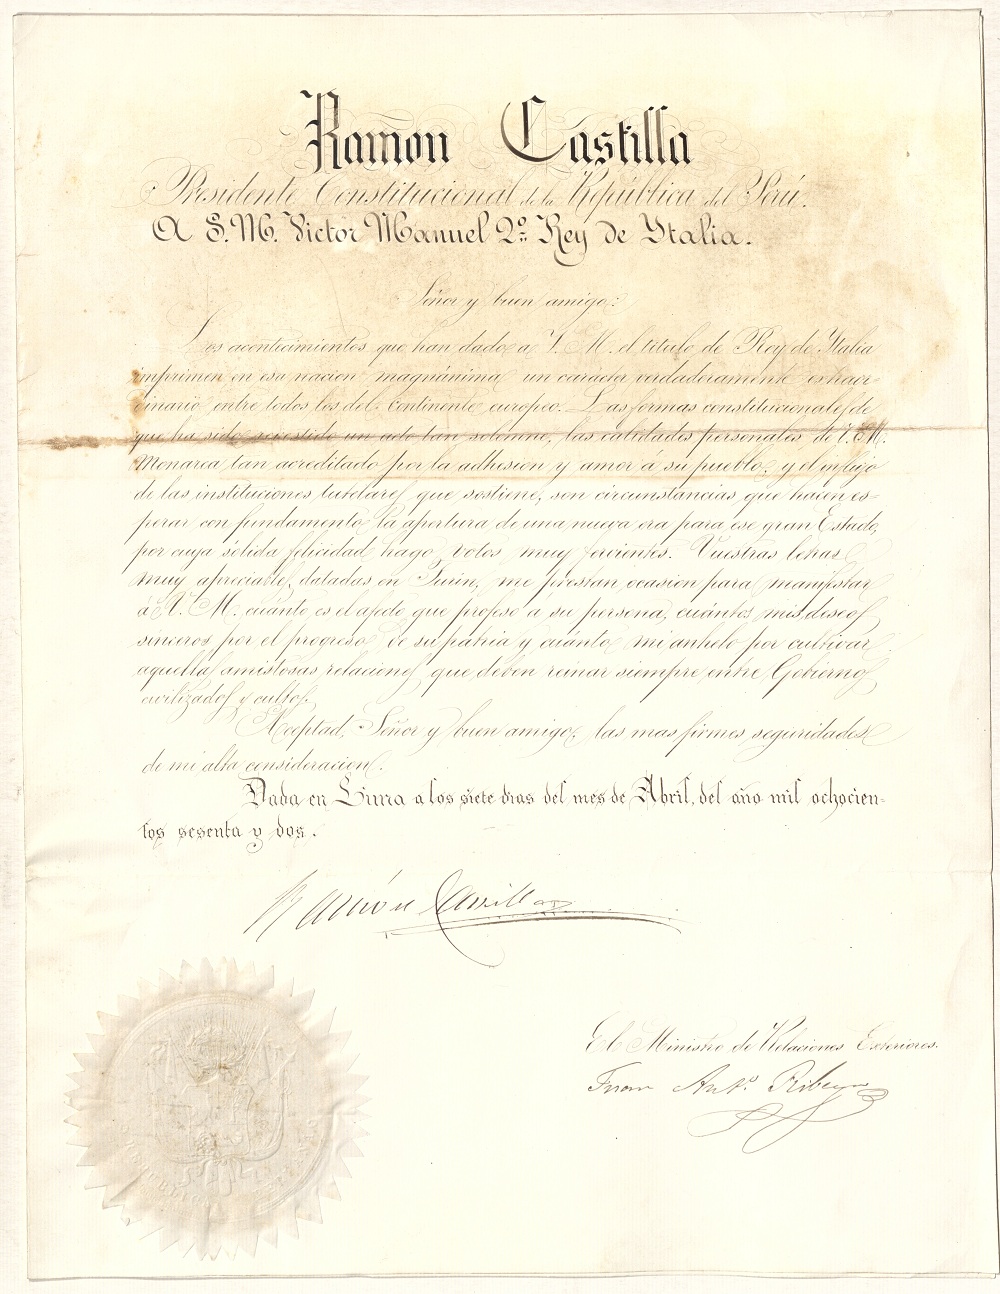 Ramon Castilla
Presidente Constitucional de la República del Perú.
A S. M. Victor Manuel 2º Rey de Italia.
Señor y buen amigo:
Los acontecimientos que han dado a V. M. el titulo de Rey de Italia
imprimen en esa nacion magnánima un carácter verdaderamente extraor
dinario entre todos los del continente europeo. Las formas constitucionales de
que ha sido revestido un acto tan solemne, las calidades personales de V. M.
Monarca tan acreditado por la adhesion y amor á su pueblo, y el influjo
de las instituciones tutelares que sostiene, son circunstancias que hacen es-
perar con fundamento la apertura de una nueva era para ese gran Estado,
por cuya sólida felicidad hago votos muy fervientes. Vuestras letras
muy apreciables, datadas en Turin, me prestan ocasion para manifestar
á V. M. cuánto es el afecto que profeso a su persona, cuántos mis deseos
sinceros por el progreso de su patria y cuánto mi anhelo por cultivar
aquellas amistosas relaciones que deben reinar siempre entre Gobiernos
civilizados y cultos.
Aceptad, Señor y buen amigo, las mas firmes seguridades
de mi alta consideracion.
Dada en Lima a los siete dias del mes de Abril, del año mil ochocien-
tos sesenta y dos.
Ramón Castilla
El Ministro de Relaciones Exteriores.
Juan Antº Ribeyro
REPUBLICA PERUANA